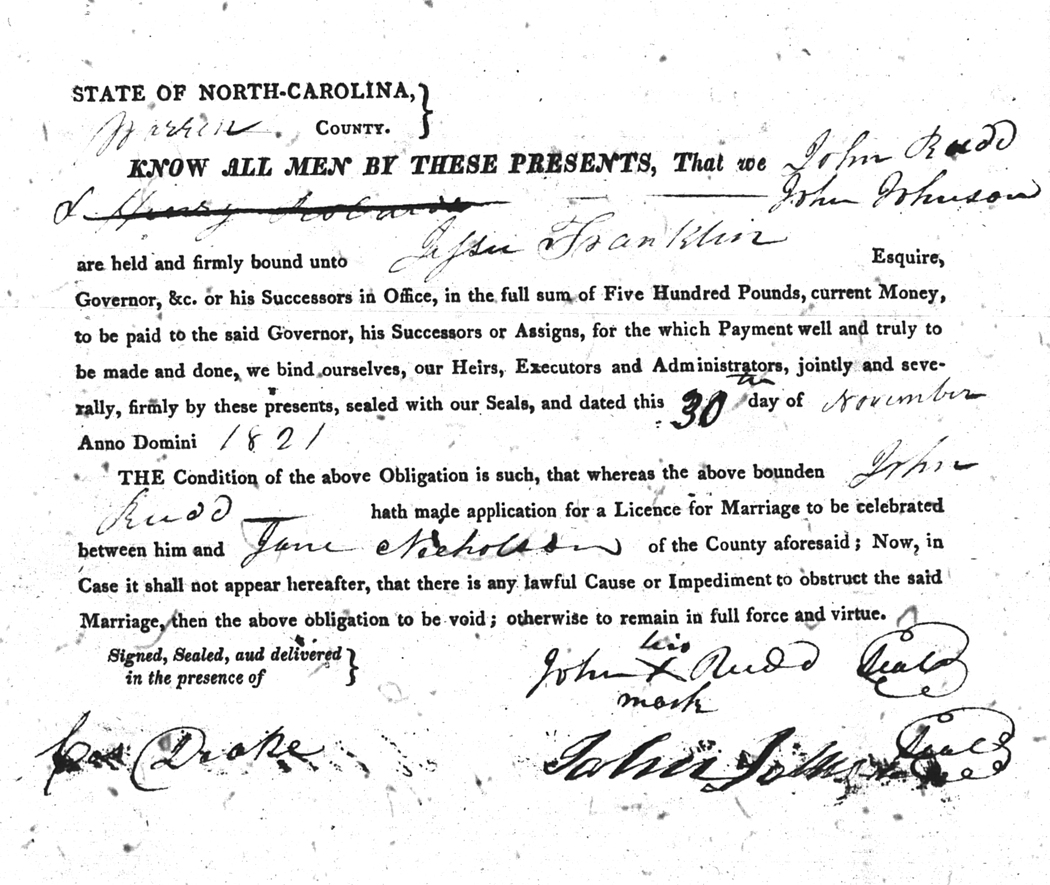 STATE OF NORTH-CAROLINA,}
Warren COUNTY.
KNOW ALL MEN BY THESE PRESENTS, That we John Rudd
& Henry John Johnson
are held and firmly bound unto Jesse Franklin Esquire,
Governor, &c. or his Successors in Office, in the full sum of Five Hundred Pounds, current Money,
to be paid to the said Governor, his Successors or Assigns, for the which Payment well and truly to
be made and done, we bind ourselves, our Heirs, Executors and Administrators, jointly and seve-
rally, firmly by these presents, sealed with our Seals, and dated this 30th day of November
Anno Domini 1821
THE Condition of the above Obligation is such, that whereas the above bounden John
Rudd hath made application for a Licence for Marriage to be celebrated
between him and Jane Nicholson of the County aforesaid; Now, in
Case it shall not appear hereafter, that there is any lawful Cause or Impediment to obstruct the said
Marriage, then the above obligation to be void; otherwise to remain in full force and virtue.
Signed, Sealed, aud delivered}
in the presence of
his
John X Rudd Seal
mark
Drake
John Seal